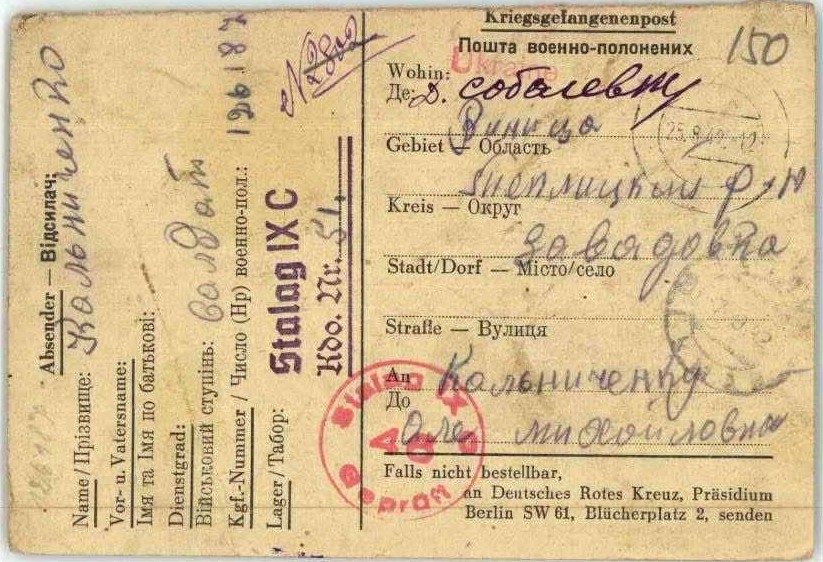 Kriegsgefangenenpost
Пошта военно-полонених
150
Ukraine
Wohin:
Де: Д. Соболевку
Виница
Gebiet — Область
Теплицкий р-н
Kreis — Округ
Завадовка
Stadt/Dorf — Місто/село
Straße — Вулиця
An Кальниченку
До
Оле Михойловна
Falls nicht bestellbar,
an Deutsches Rotes Kreuz, Präsidium
Berlin SW 61, Blücherplatz 2, senden
Absender — Відсилач:
Name/Прізвище: Кальниченко
Vor- u. Vatersname:
Імя та Імя по батькові:
Dienstgrad:
Військовий ступінь: солдат
Kgf.-Nummer / Число (Нр) военно-пол.: 126187
Lager/Табор:
Stalag IX C
Kdo. Nr. 51.
N 2802
Stalag IX C
48
Geprüft